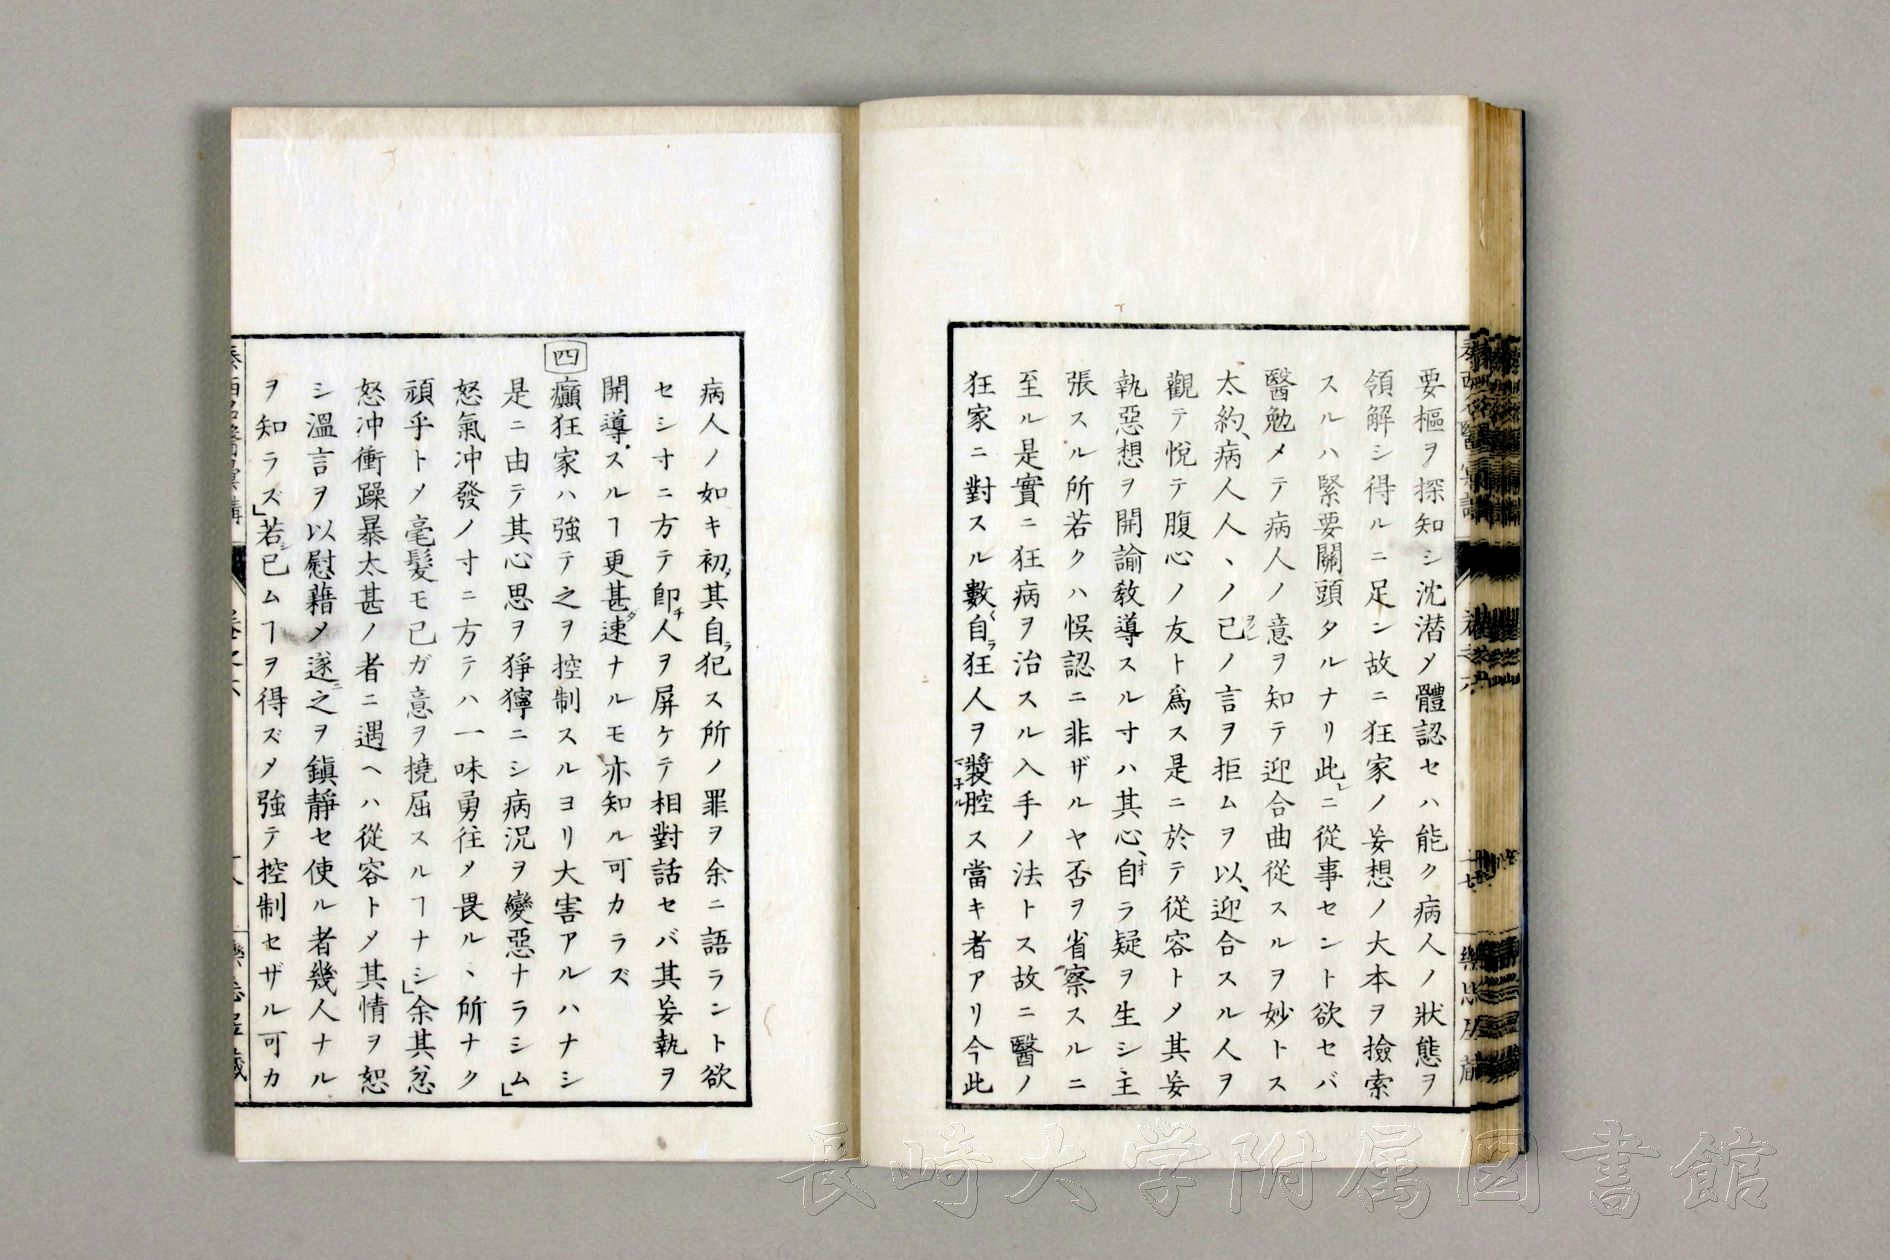 要樞ヲ探知シ沈潜メ體認セハ能ク病人ノ狀態ヲ
領解シ得ルニ足ン故ニ狂家ノ妄想ノ大本ヲ撿索
スルハ緊要關頭タルナリ此レニ從事セント欲セバ
醫勉メテ病人ノ意ヲ知テ迎合曲從スルヲ妙トス
太約、病人人、ノ已ノ言ヲ拒ムヲ以、迎合スル人ヲ
觀テ悅テ腹心ノ友ト爲ス是ニ於テ從容トメ其妄
執惡想ヲ開諭敎導スル寸ハ其心、自ラ疑ヲ生シ主
張スル所若クハ悞認ニ非ザルヤ否ヲ省察スルニ
至ル是實ニ狂病ヲ治スル入手ノ法トス故ニ醫ノ
狂家ニ對スル數〱自ラ狂人ヲ裝腔ス當キ者アリ今此
病人ノ如キ初メ其自ラ犯ス所ノ罪ヲ余ニ語ラント欲
セシ寸ニ方テ卽チ人ヲ屏ケテ相對話セバ其妄執ヲ
開導スルヿ更甚ダ速ナルモ亦知ル可カラズ
四 癲狂家ハ強テ之ヲ控制スルヨリ大害アルハナシ
是ニ由テ其心思ヲ猙獰ニシ病況ヲ變惡ナラシム」
怒氣沖發ノ寸ニ方テハ一味勇往メ畏ル、所ナク
頑乎トメ毫髮モ已ガ意ヲ撓屈スルヿナシ」余其忿
怒沖衝躁暴太甚ノ者ニ遇ヘハ從容トメ其情ヲ恕
シ溫言ヲ以慰藉メ遂ニ之ヲ鎭靜セ使ル者幾人ナル
ヲ知ラズ」若シ已ムヿヲ得ズメ強テ控制セザル可カ
長崎大学附属図書館